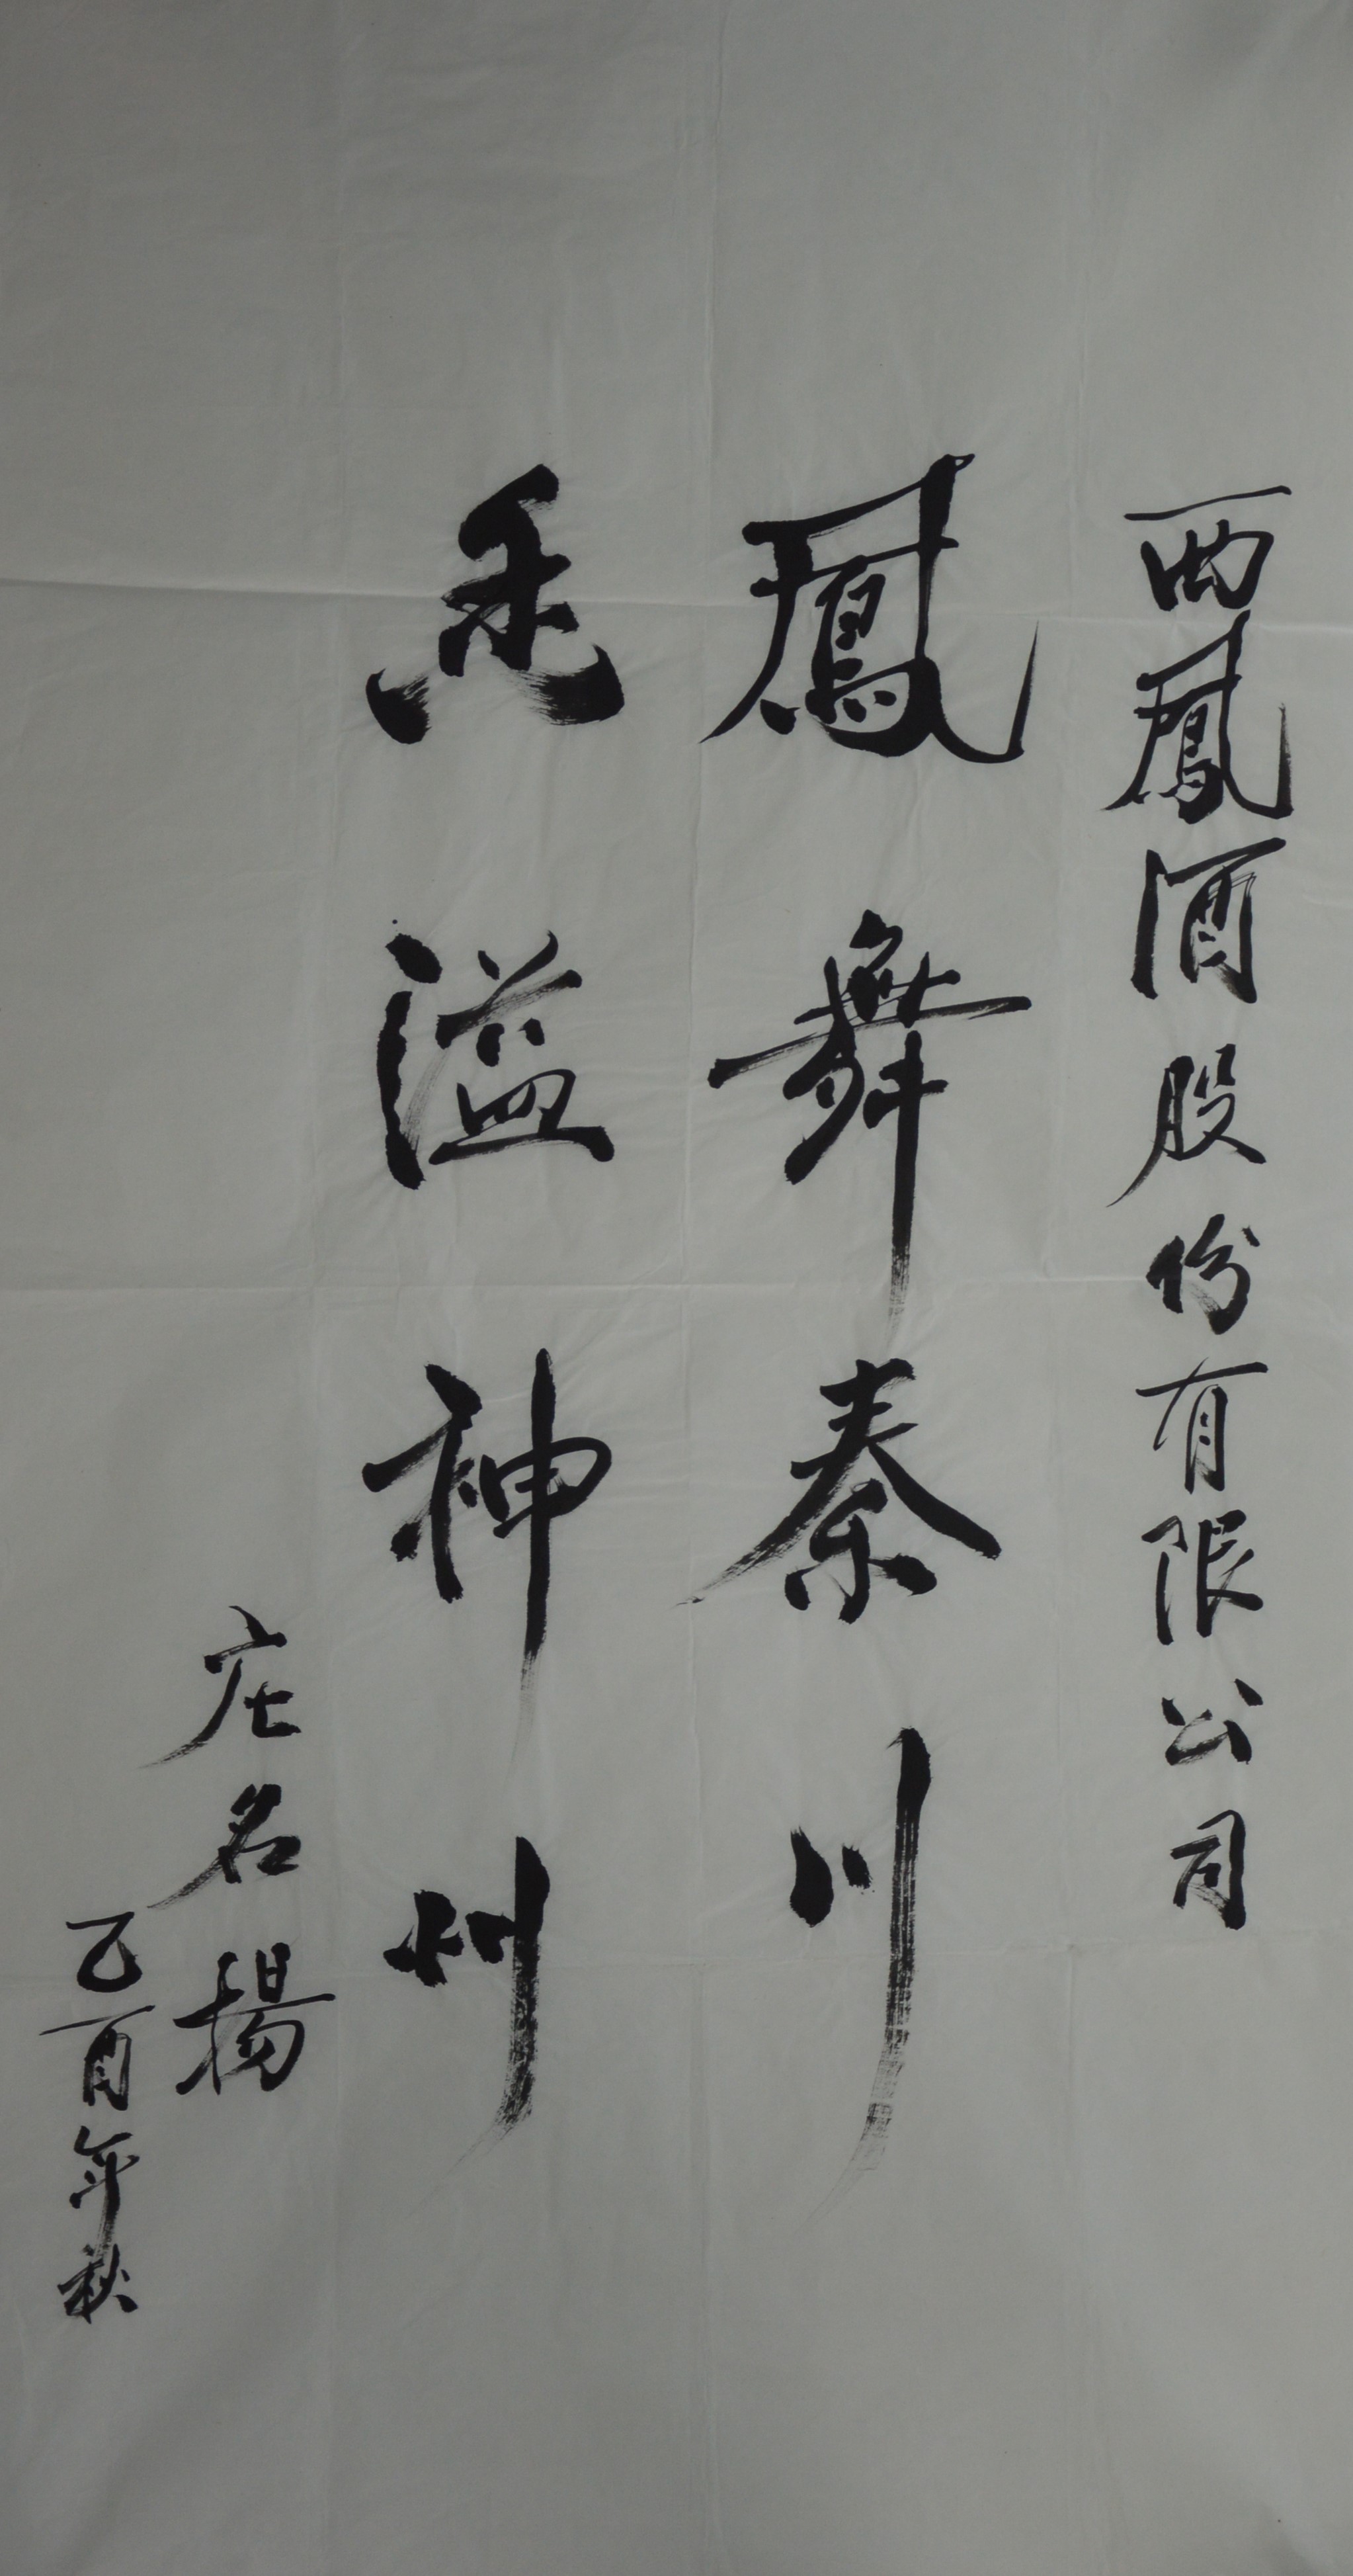 西鳳酒股份有限公司
鳳舞秦川
香溢神州
庄名揚
乙酉年秋